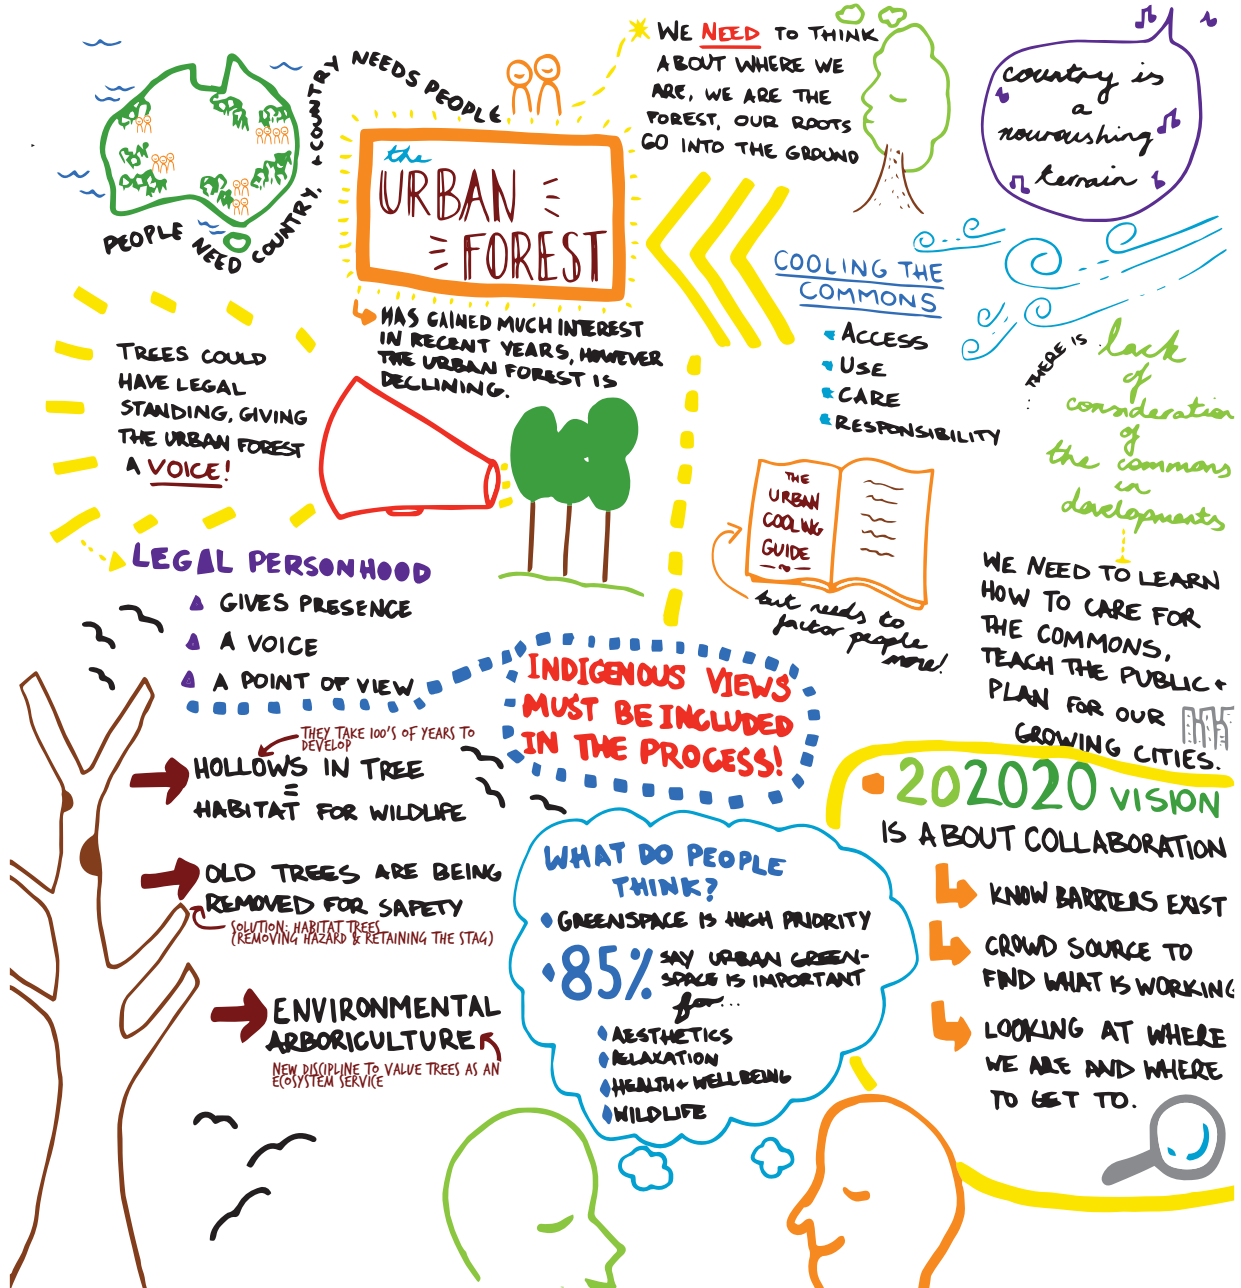 PEOPLE NEED COUNTRY, + COUNTRY NEEDS PEOPLE
the
URBAN
FOREST
HAS GAINED MUCH INTEREST
IN RECENT YEARS, HOWEVER
THE URBAN FOREST IS
DECLINING.
WE NEED TO THINK
ABOUT WHERE WE
ARE, WE ARE THE
FOREST, OUR ROOTS
GO INTO THE GROUND
country is
a
nourishing
terrain
COOLING THE
COMMONS
ACCESS
USE
CARE
RESPONSIBILITY
THERE IS
lack
of
consideration
of
the commons
in
developments
TREES COULD
HAVE LEGAL
STANDING, GIVING
THE URBAN FOREST
A VOICE!
THE
URBAN
COOLING
GUIDE
but needs to
factor people
more!
WE NEED TO LEARN
HOW TO CARE FOR
THE COMMONS,
TEACH THE PUBLIC +
PLAN FOR OUR
GROWING CITIES.
LEGAL PERSONHOOD
GIVES PRESENCE
A VOICE
A POINT OF VIEW
INDIGENOUS VIEWS
MUST BE INCLUDED
IN THE PROCESS!
THEY TAKE 100'S OF YEARS TO
DEVELOP
HOLLOWS IN TREE
=
HABITAT FOR WILDLIFE
OLD TREES ARE BEING
REMOVED FOR SAFETY
SOLUTION: HABITAT TREES
(REMOVING HAZARD & RETAINING THE STAG)
ENVIRONMENTAL
ARBORICULTURE
NEW DISCIPLINE TO VALUE TREES AS AN
ECOSYSTEM SERVICE
WHAT DO PEOPLE
THINK?
GREENSPACE IS HIGH PRIORITY
85% SAY URBAN GREEN-
SPACE IS IMPORTANT
for...
AESTHETICS
RELAXATION
HEALTH + WELLBEING
WILDLIFE
202020 VISION
IS ABOUT COLLABORATION
KNOW BARRIERS EXIST
CROWD SOURCE TO
FIND WHAT IS WORKING
LOOKING AT WHERE
WE ARE AND WHERE
TO GET TO.